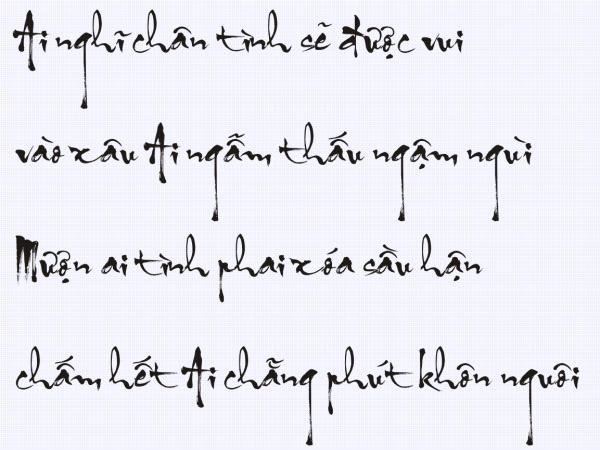 Ai nghĩ chân tình sẽ được vui
vào xâu Ai ngẫm thấu ngậm ngùi
Mượn ai tình phai xóa sầu hận
chấm hết Ai chẵng phút khôn nguôi